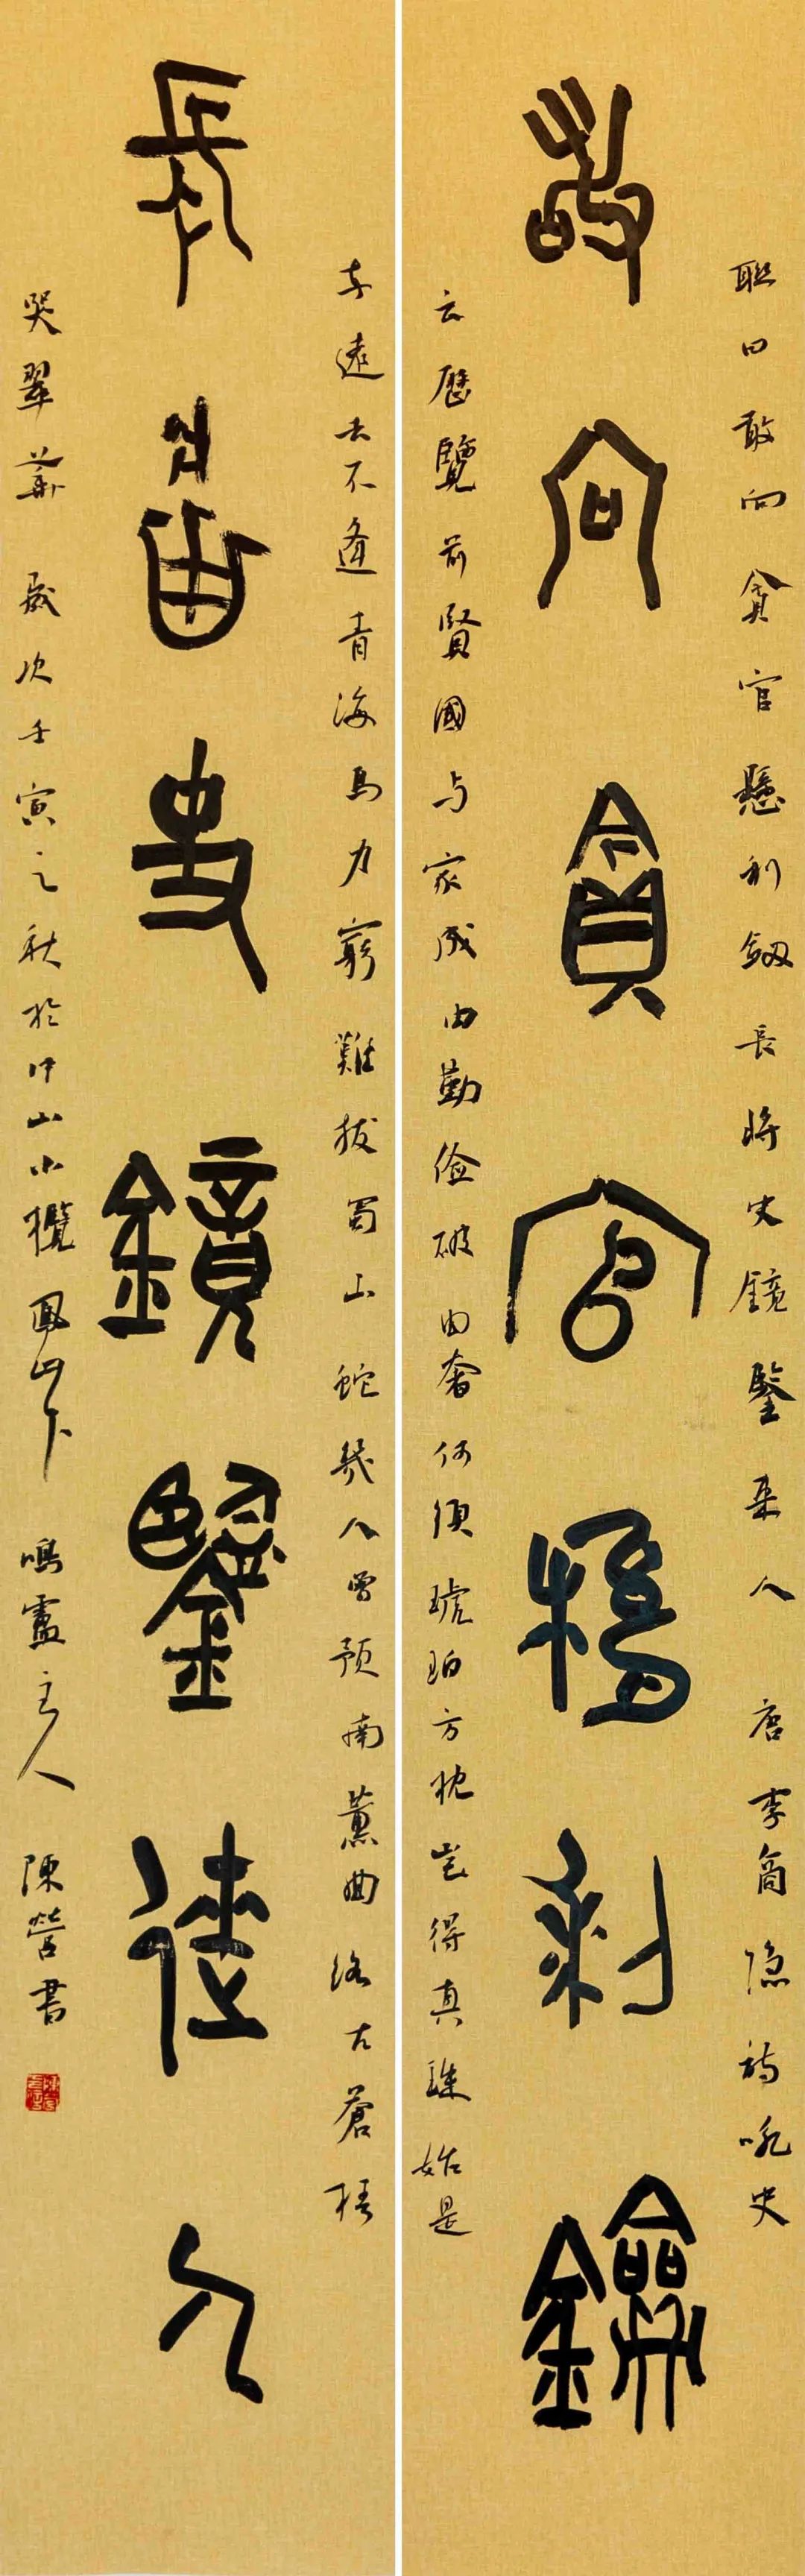 聯曰敢向貪官懸利劔長將史鏡鑒来人 唐李商隐詩咏史
敢向貪官懸利劍
云歷覽前賢國与家成由勤俭破由奢何須琥珀方枕豈得真珠始是
车遠去不逢青海馬力窮難拔蜀山蛇幾人曾预南薰曲终古蒼梧
長將史鏡鑒徠人
哭翠華 歲次壬寅之秋於中山小欖鳳山下 鳴盧主人 陳營書